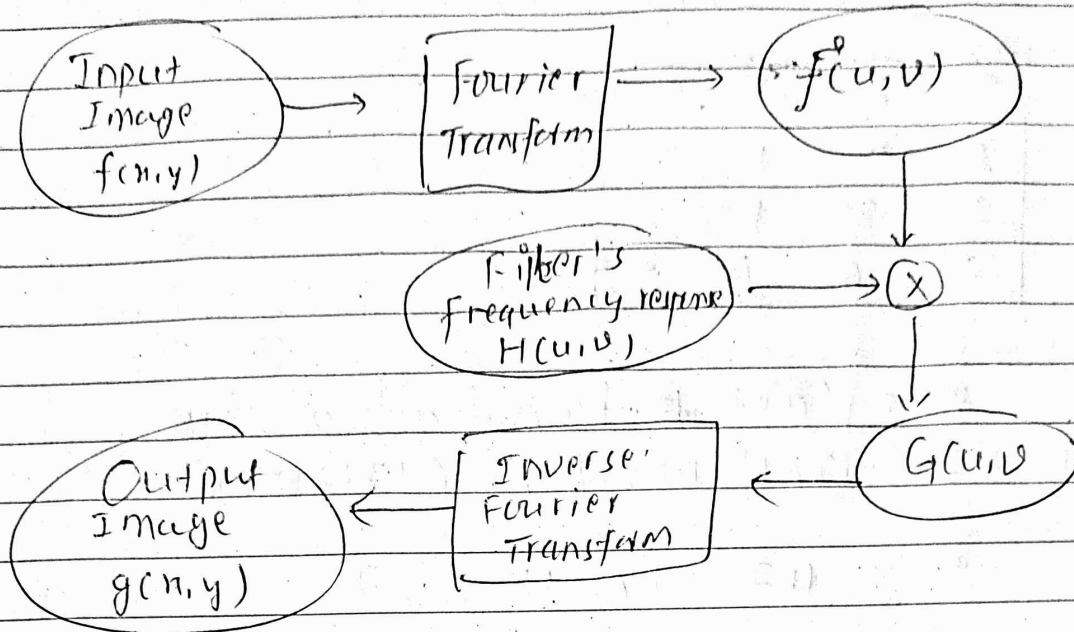 Input
Image
f(x,y)
Fourier
Transform
f(u,v)
Filter's
frequency response
H(u,v)
X
G(u,v
Inverse
Fourier
Transform
Output
Image
g(x,y)